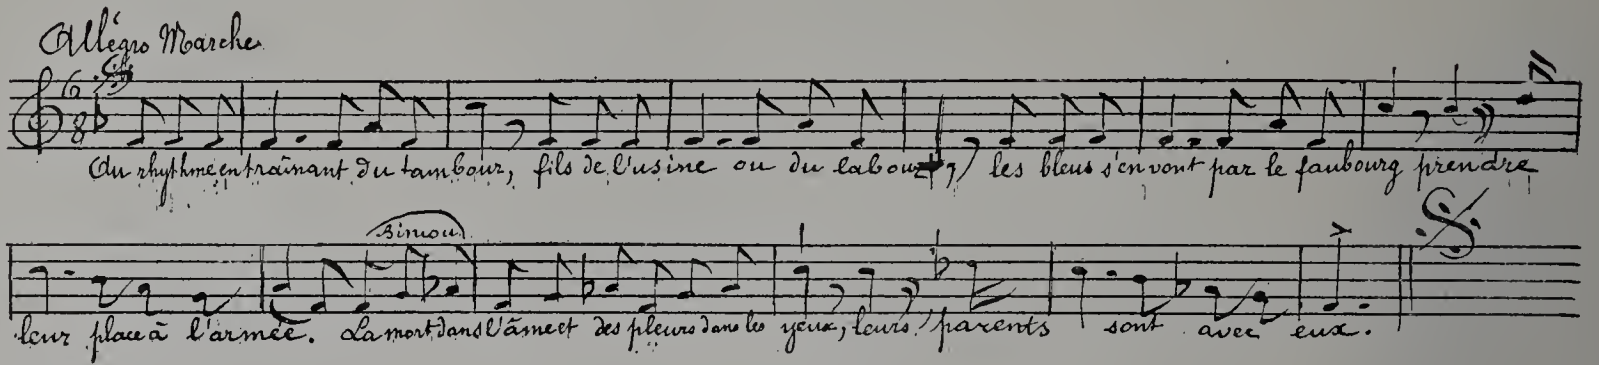 Allégro Marche
6
8
Au rhythme entraînant du tambour, fils de l'usine ou du labour, les bleus s'en vont par le faubourg prendre
Biniou
leur place à l'armée. La mort dans l'âme et des pleurs dans les yeux, leurs parents sont avec eux.